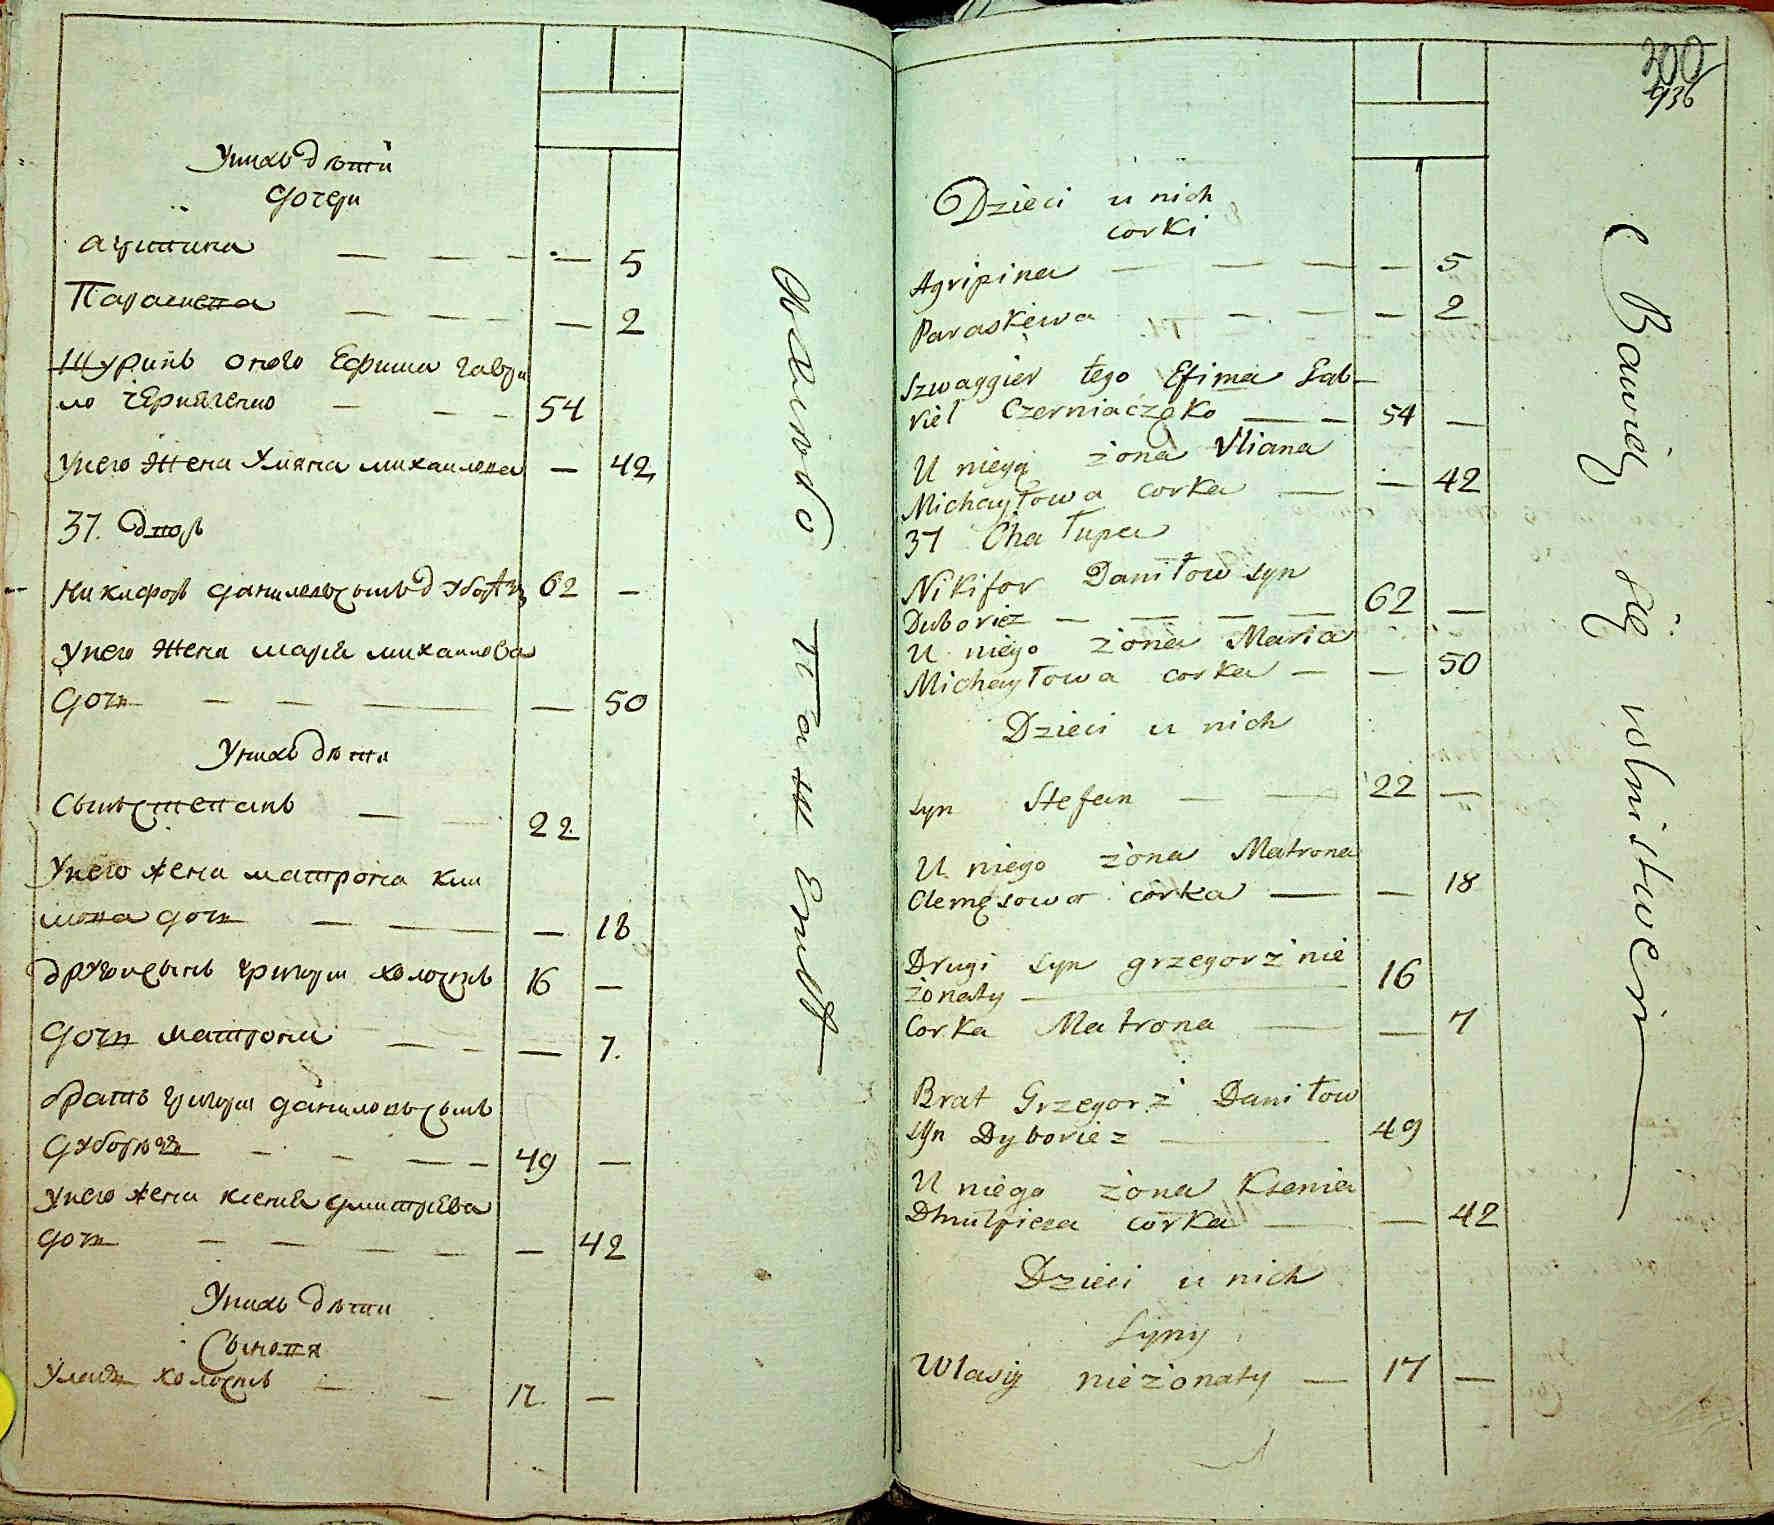 У нихъ дѣти
дочери
агрипина — — — — 5
Параскева — — — — 2
Шуринъ оного Ефима гаври
ло черняченко — — — 54
У него жена Уляна михаилова — 42
37. дворъ
Никифоръ даниловъ сынъ дуборѣзъ 62 —
У него жена марія михаилова
дочь — — — — 50
У нихъ дѣти
Сынъ степанъ — — 22
У него жена матрона кли
мова дочь — — — 18
другой сынъ григори холостъ 16 —
дочь матрона — — — 7.
братъ григори даниловъ сынъ
дуборѣзъ — — — — 49 —
У него жена ксенія дмитріева
дочь — — — — — 42
У нихъ дѣти
Сыновя
Уласъ холостъ — — 17. —
300
936
Dzieci u nich
corki
Agripina — — — — 5
Paraskiewa — — — 2
Szwaggier tego Efima Gab-
riel Czerniaczęko — — 54 —
U niego żona Uliana
Michayłowa corka — — 42
37 Chałupa
Nikifor Daniłow syn
Duboriez — — — — 62 —
U niego żona Maria
Michayłowa corka — — 50
Dzieci u nich
syn Stefan — — 22 —
U niego żona Matrona
Clemęsowa córka — — 18
Drugi syn grzegorz nie
żonaty — 16
Corka Matrona — — 7
Brat Grzegorz Daniłow
syn Dyboriez — 49
U niego żona Ksenia
corka — — 42
Dzieci u nich
Syny
Wlasiy nieżonaty — 17 —
Bawiąj się rolnistwem